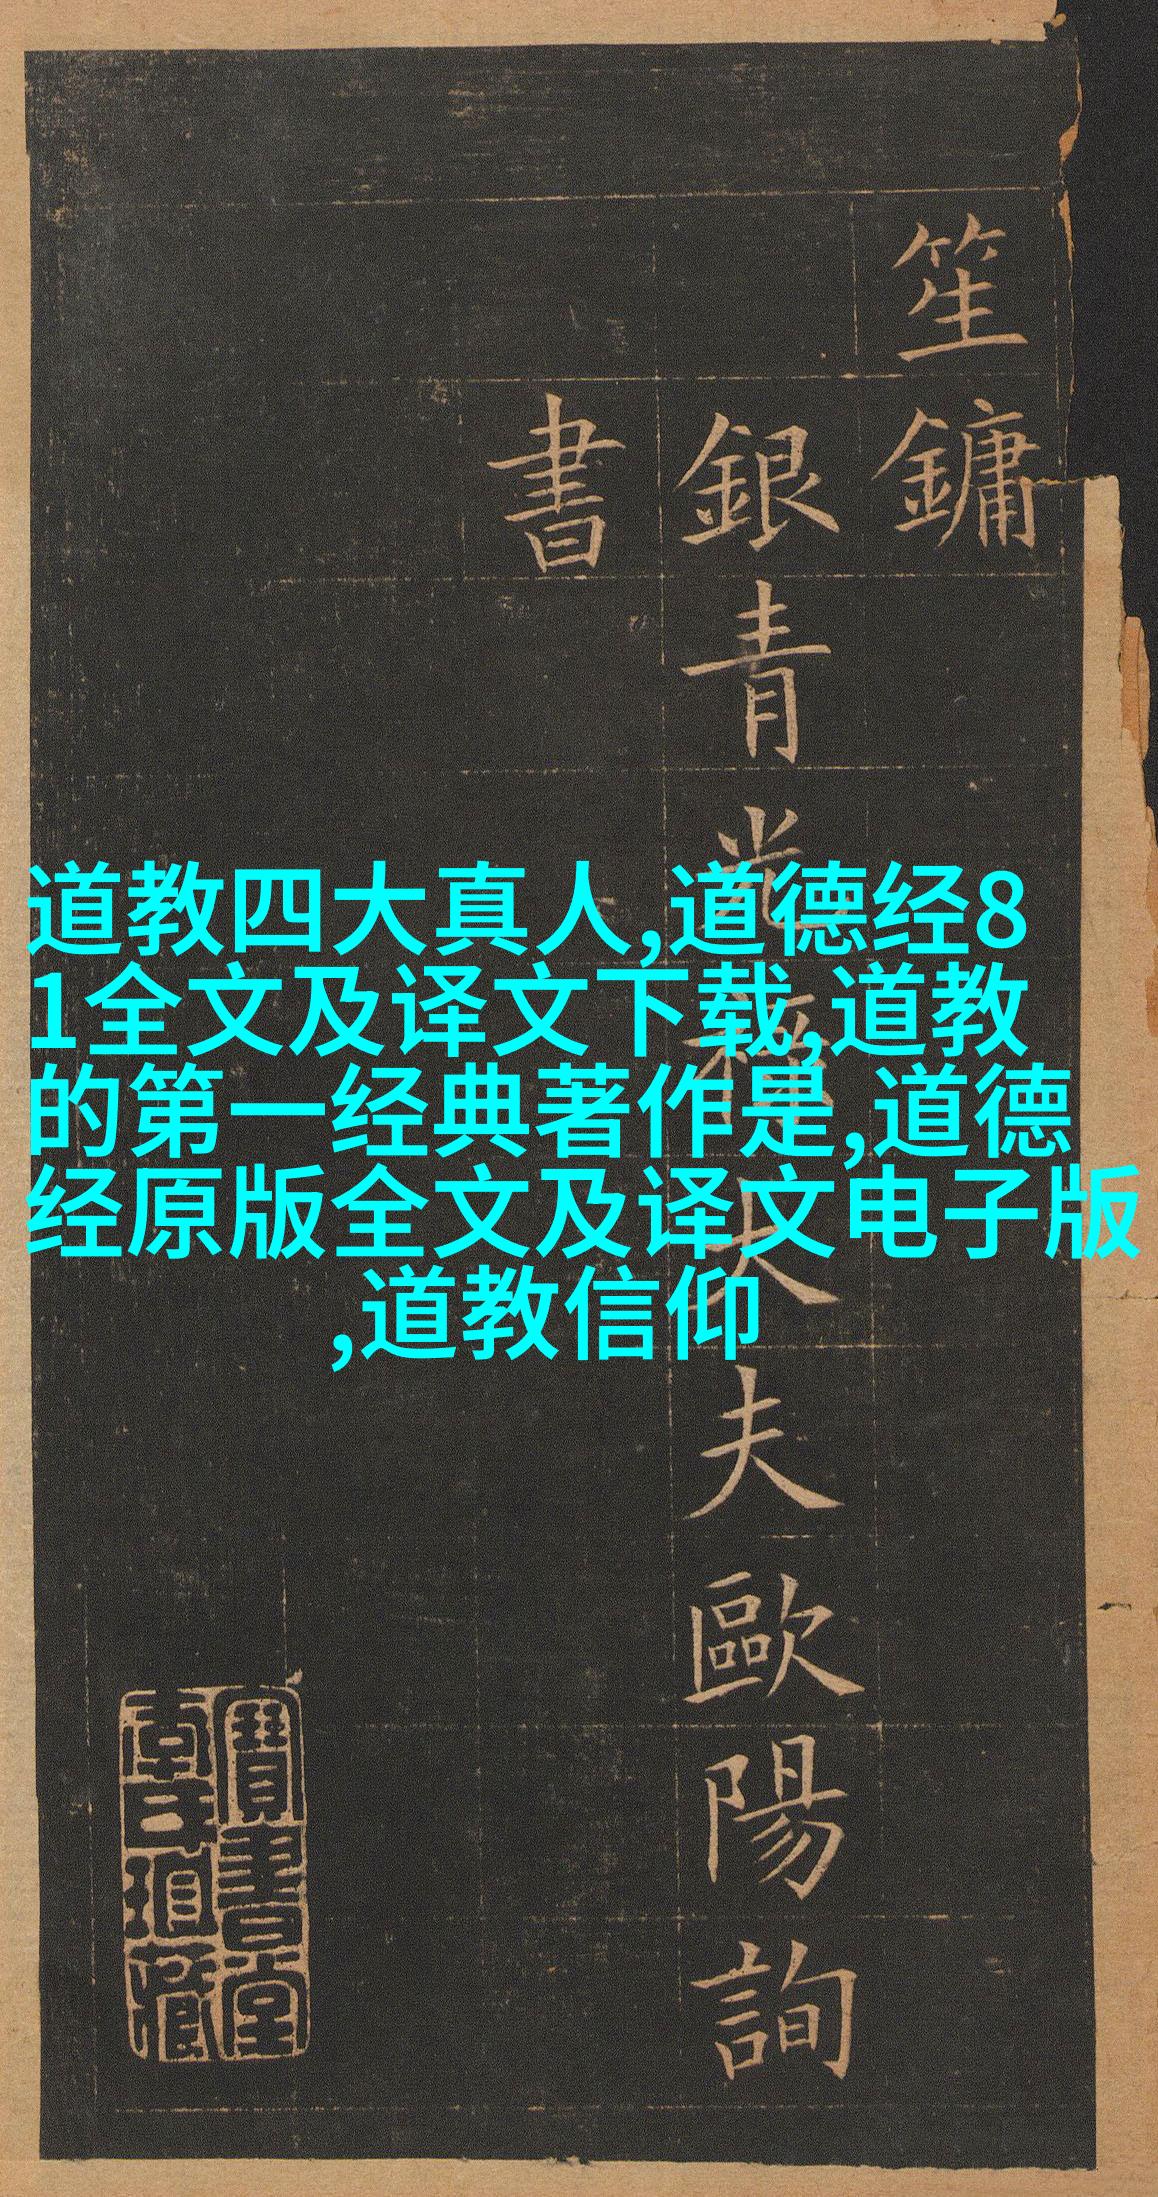 笙鏞
銀青光祿大夫歐陽詢
書
道教四大真人,道德经8
1全文及译文下载,道教
的第一经典著作是,道德
经原版全文及译文电子版
,道教信仰
寶書堂